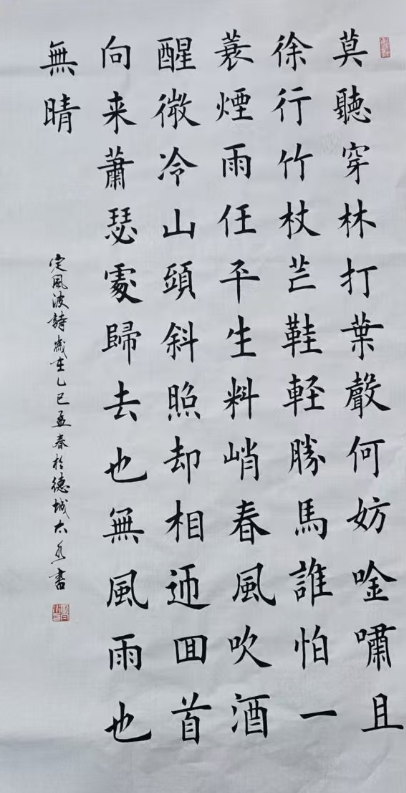 莫聽穿林打葉聲何妨唫嘯且
徐行竹杖芒鞋軽勝馬誰怕一
蓑煙雨任平生料峭春風吹酒
醒微冷山頭斜照却相迊囬首
向来蕭瑟處歸去也無風雨也
無晴
定風波詩歲在乙巳孟春於德城書